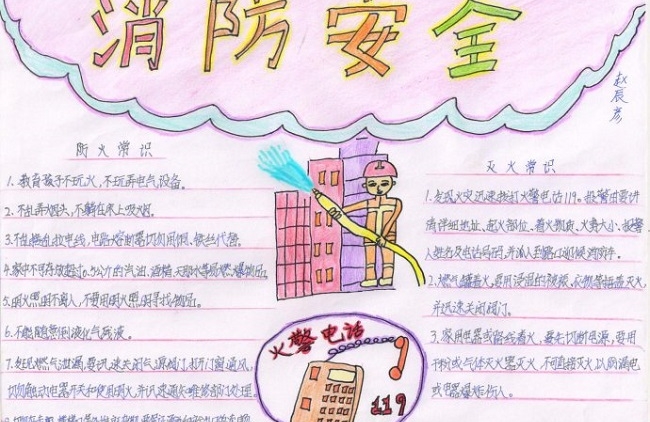 消防安全
赵辰彦
防火常识
1.教育孩子不玩火，不玩弄电气设备。
2.不乱丢烟头，不躺在床上吸烟。
3.不乱接乱拉电线，电路熔断器切勿用铜、铁丝代替。
4.家中不可存放超过0.5公斤的汽油、酒精、天那水等易燃易爆物品。
5.明火照明时不离人，不要用明火照明寻找物品。
6.不能随意倒液化气残液。
7.发现燃气泄漏，要迅速关闭气源阀门，打开门窗通风，
切勿触动电器开关和使用明火，并迅速通知维修部门处理。
火警电话
119
灭火常识
1.发现火灾迅速拨打火警电话119。报警时要讲
清详细地址、起火部位、着火物质、火势大小、报警
人姓名及电话号码，并派人到路口迎候消防车。
2.燃气罐着火，要用浸湿的被褥、衣物等捂盖灭火，
并迅速关闭阀门。
3.家用电器或线路着火，要先切断电源，再用
干粉或气体灭火器灭火，不可直接泼水灭火，以防触电
或电器爆炸伤人。